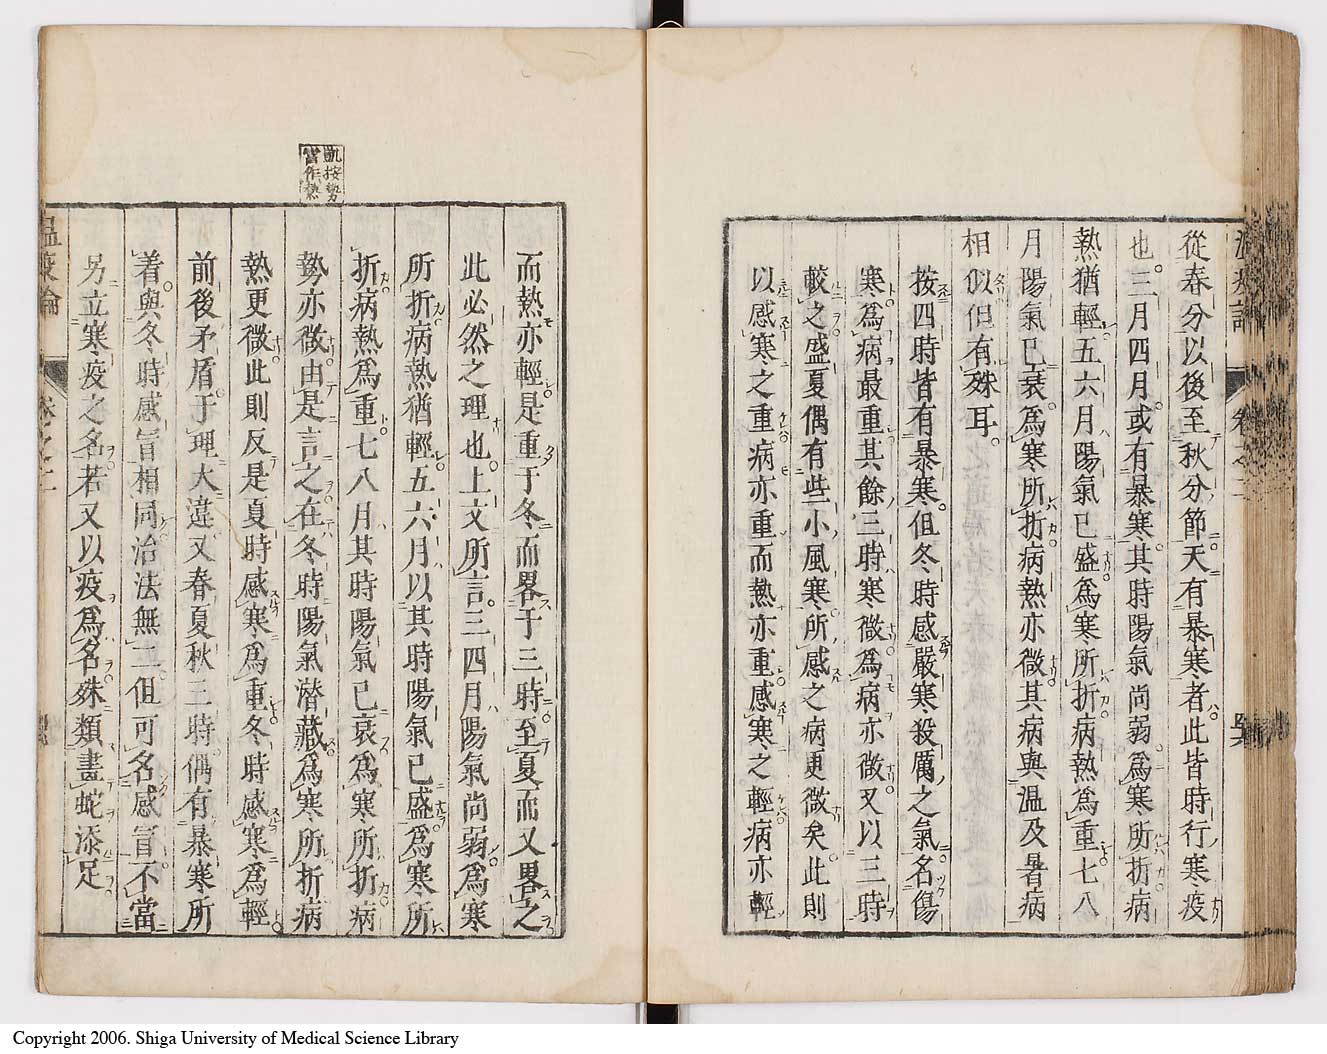 從春分以後至秋分節天有暴寒者此皆時行寒疫
也三月四月或有暴寒其時陽氣尚弱爲寒所折病
熱猶輕五六月陽氣已盛爲寒所折病熱爲重七八
月陽氣已衰爲寒所折病熱亦微其病與温及暑病
相似但有殊耳
按四時皆有暴寒但冬時感嚴寒殺厲之氣名傷
寒爲病最重其餘三時寒微爲病亦微又以三時
較之盛夏偶有些小風寒所感之病更微矣此則
以感寒之重病亦重而熱亦重感寒之輕病亦輕
凱按勢
當作熱
而熱亦輕是重于冬而畧于三時至夏而又畧之
此必然之理也上文所言三四月陽氣尚弱爲寒
所折病熱猶輕五六月以其時陽氣已盛爲寒所
折病熱爲重七八月其時陽氣已衰爲寒所折病
勢亦微由是言之在冬時陽氣潜藏爲寒所折病
熱更微此則反是夏時感寒爲重冬時感寒爲輕
前後矛盾于理大違又春夏秋三時偶有暴寒所
着與冬時感冒相同治法無二但可名感冒不當
另立寒疫之名若又以疫爲名殊類畫蛇添足
温疫論 卷之二
Copyright 2006. Shiga University of Medical Science Library